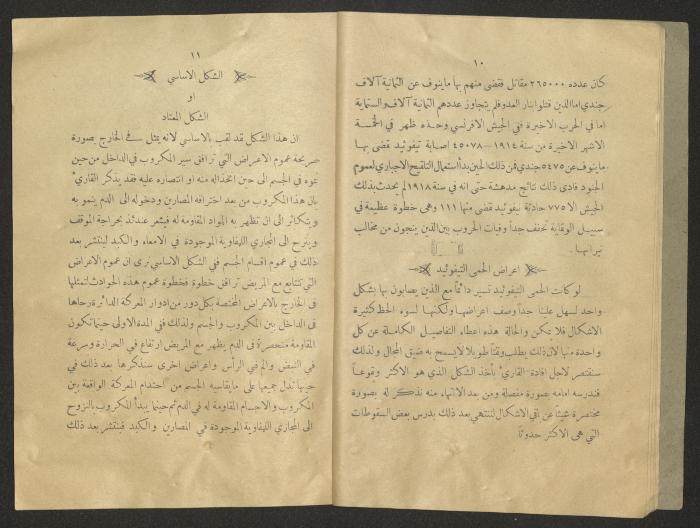 ١٠
كان عدده ٢٦٥٠٠٠ مقاتل فقضى منهم بها ماينوف عن الثمانية آلاف
جندي اما الذين قتلوا بنار العدو فلم يتجاوز عددهم الثمانية آلاف والستماية
اما في الحرب الاخيرة في الجيش الافرنسي وحده ظهر في الخمسة
الاشهر الاخيرة من سنة ١٩١٤ـ٤٥٠٧٨ اصابة تيفوئيد قضى بها
ماينوف عن ٥٤٧٥ جندي فمن ذلك الحين بدأ استعمال التلقيح الاجباري لعموم
الجنود فادى ذلك نتائج مدهشة حتى انه في سنة ١٩١٨ لم يحدث بذلك
الجيش الا ٧٧٥ حادثة تيفوئيد قضى منها ١١١ وهى خطوة عظيمة في
سبيل الوقاية تخفف جداً وفيات الحروب بين الذين ينجون من مخالب
نيرانها.
اعراض الحمى التيفوئيد
لو كانت الحمى التيفوئيد تسير دائماً مع الذين يصابون بها بشكل
واحد لسهل علينا جداً وصف اعراضها ولكنها لسوء الحظ كثيرة
الاشكال فلا يمكن والحالة هذه اعطاء التفاصيل الكاملة عن كل
واحدة منها لان ذلك يطلب وقتاً طويلا لا يسمح به ضيق المجال ولذلك
سنقتصر لاجل افادة القارىء بأخذ الشكل الذي هو الاكثر وقوعاً
فندرسه امامه بصورة مفصلة ومن بعد الانتهاء منه نذكر له بصورة
مختصرة شيئاً عن باقي الاشكال لننتهي بعد ذلك بدرس بعض السقوطات
التي هى الاكثر حدوثاً
١١
الشكل الاساسي
او
الشكل المعتاد
ان هذا الشكل قد لقب بالاساسي لانه يمثل في الخارج بصورة
صريحة عموم الاعراض التي ترافق سير المكروب في الداخل من حين
نموه في الجسم الى حين انخذاله منه او انتصاره عليه فقد يذكر القارىء
بان هذا المكروب من بعد اختراقه المصارين ودخوله الى الدم ينمو به
ويتكاثر الى ان تظهر به المواد المقاومة له فيشعر عندئذ بحراجة الموقف
وينزح الى المجاري الليفاوية الموجودة في الامعاء والكبد لينتشر بعد
ذلك في عموم اقسام الجسم في الشكل الاساسي نرى ان عموم الاعراض
التي تتتابع مع المريض ترافق خطوة فخطوة عموم هذه الحوادث لتمثلها
في الخارج بالاعراض المختصة بكل دور من ادوار المعركة الدائرة رحاها
في الداخل بين المكروب والجسم ولذلك في المدة الاولى حينما تكون
المقاومة منحصرة في الدم يظهر مع المريض ارتفاع في الحرارة وسرعة
في النبض والم في الرأس واعراض اخرى سنذكرها بعد ذلك في
حينها تدل جميعها على مايقاسيه الجسم من احتدام المعركة الواقعة بين
المكروب والاجسام المقاومة له في الدم ثم حينما يبدأ المكروب بالنزوح
الى المجاري الليفاوية الموجودة في المصارين والكبد فينتشر بعد ذلك